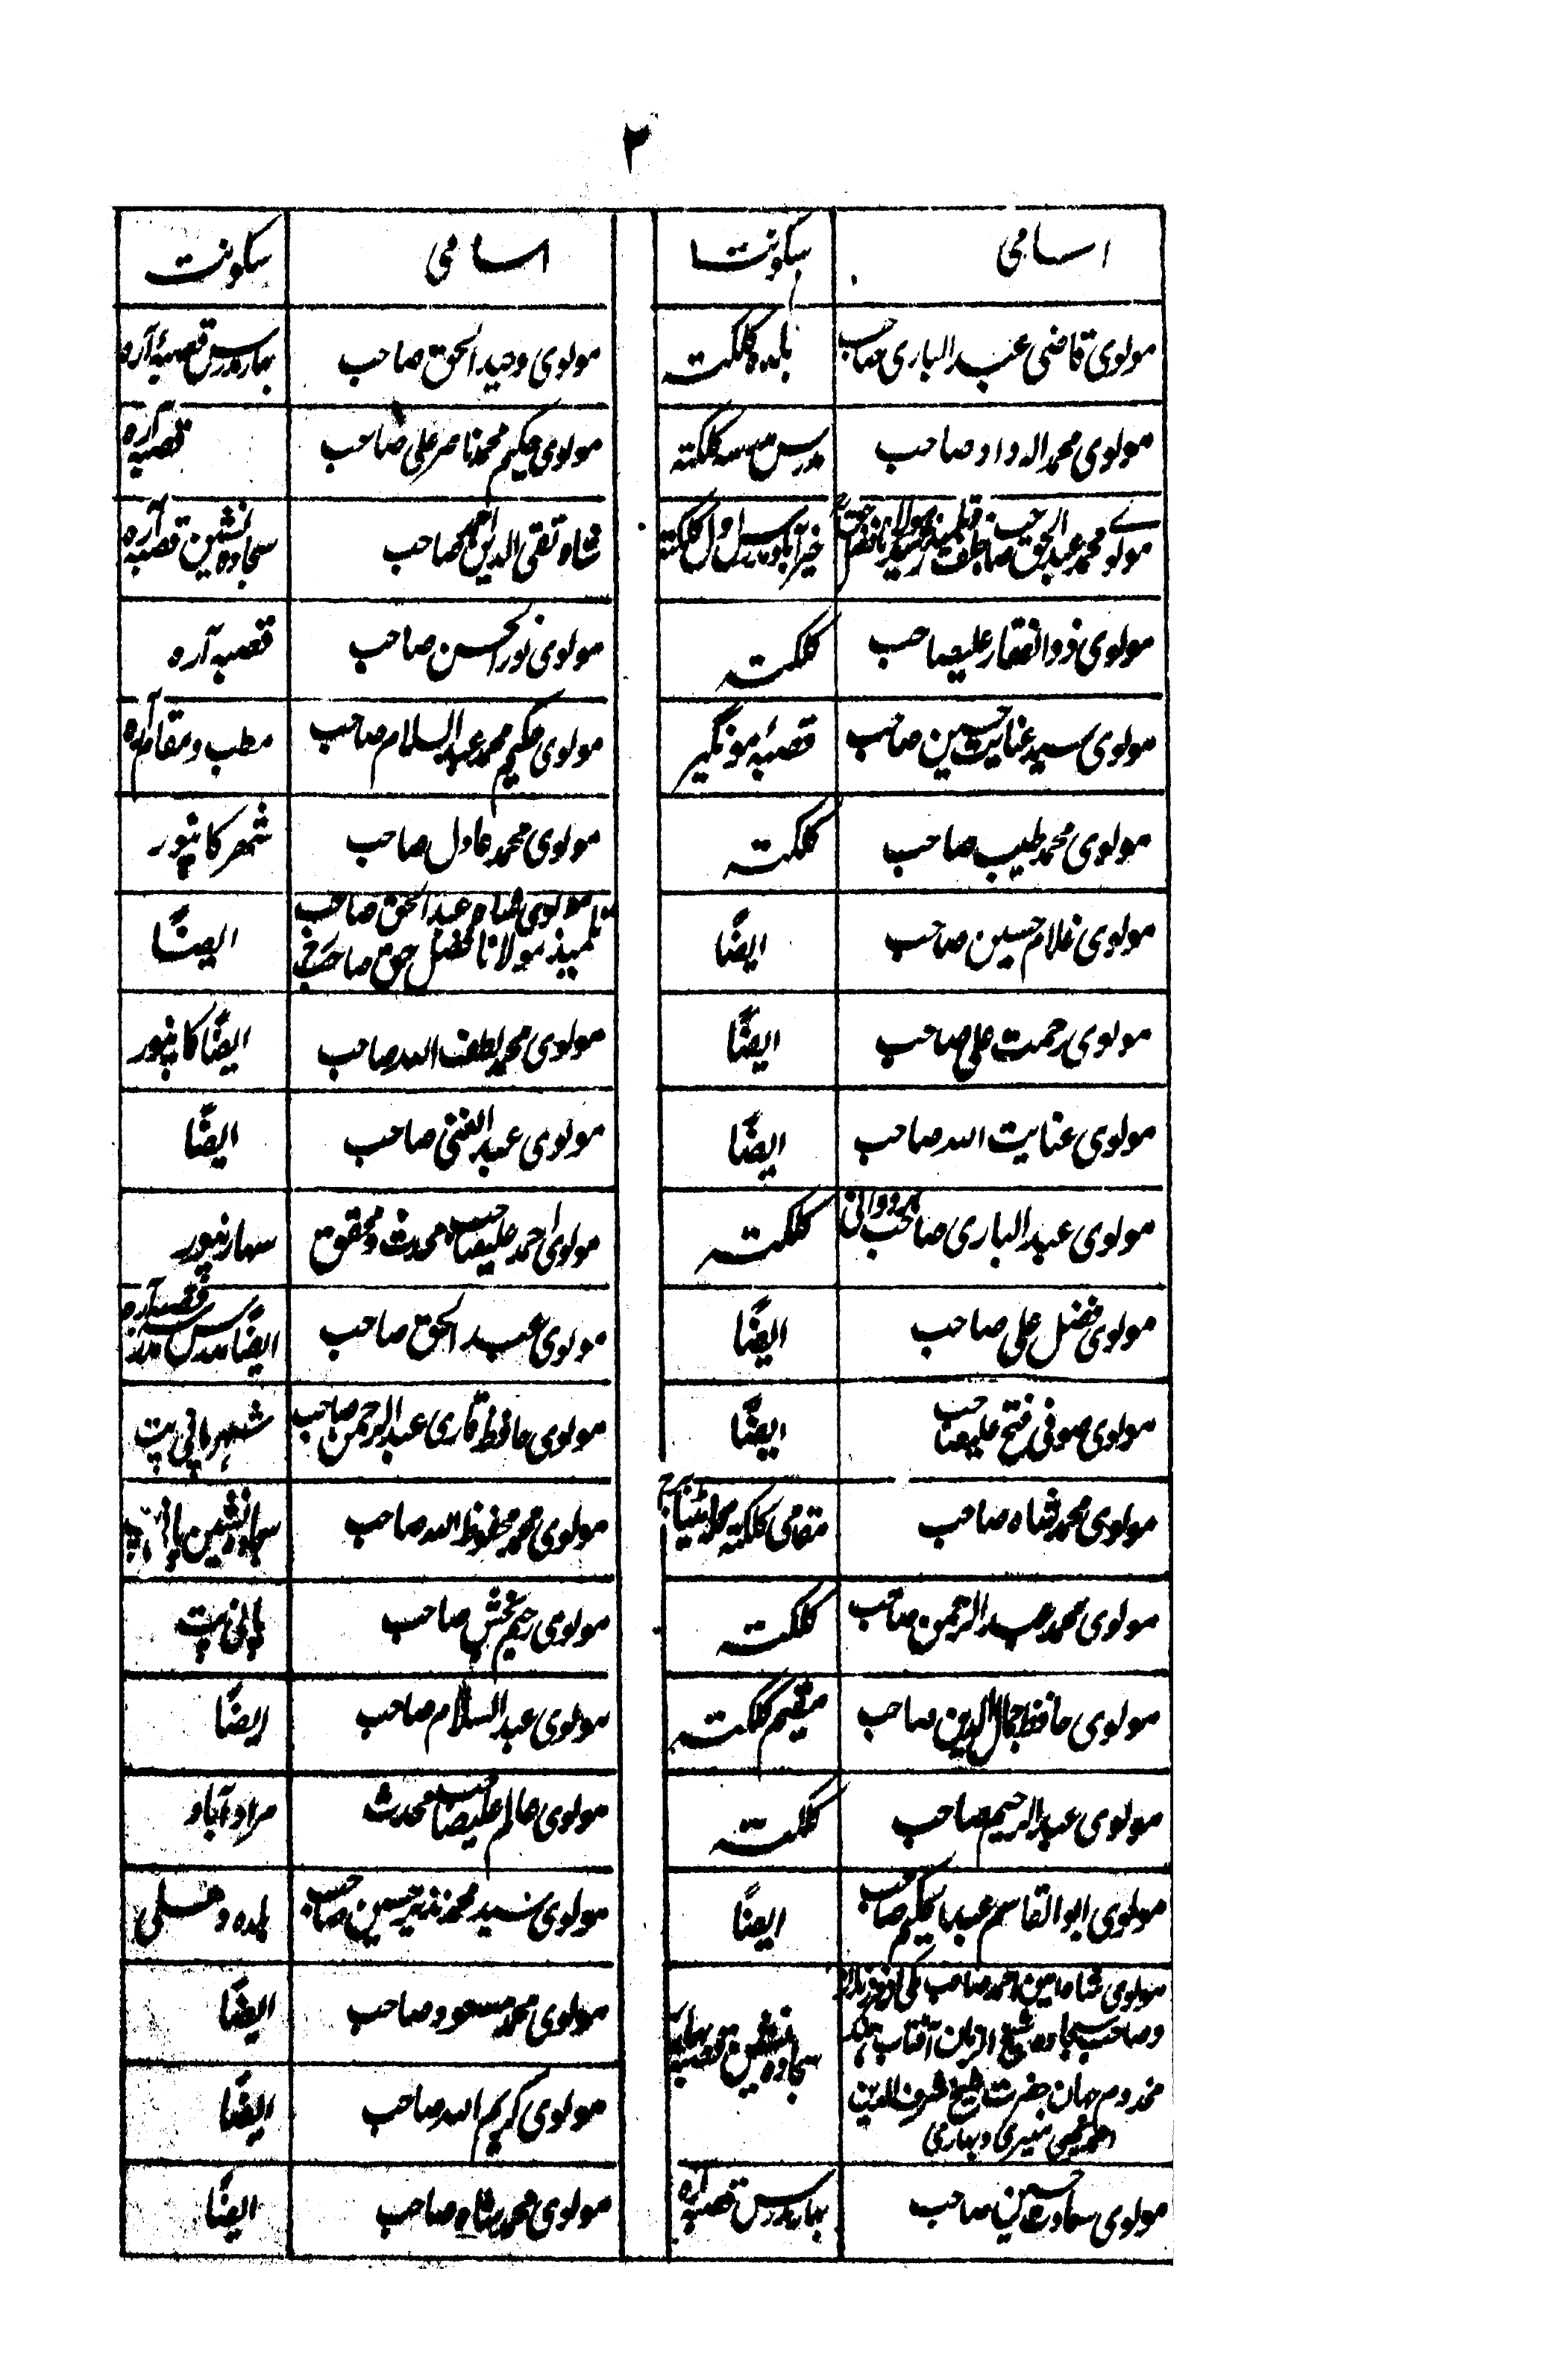 ۲
اسامی سکونت اسامی سکونت
مولوی قاضی عبدالباری صاحب بلدہ کلکتہ مولوی وحید الحق صاحب بہار مدرس قصبۂ آرہ
مولوی محمد الہ داد صاحب مدرس مدرسہ کلکتہ مولوی حکیم محمد ناصر علی صاحب قصبہ آرہ
مولوی محمد عبدالحق صاحب خیرآباد مدرس اول کلکتہ شاہ تقی الدین احمد صاحب سجادہ نشین قصبہ آرہ
مولوی ذوالفقار علیصاحب کلکتہ مولوی نور الحسن صاحب قصبہ آرہ
مولوی سید عنایت حسین صاحب قصبۂ مونگیر مولوی حکیم محمد عبدالسلام صاحب مطب و مقام آرہ
مولوی محمد طیب صاحب کلکتہ مولوی محمد عادل صاحب شہر کانپور
مولوی غلام حسین صاحب ایضًا مولوی شاہ عبدالحق صاحب تلمیذ مولانا فضل حق صاحب ایضًا
مولوی رحمت علی صاحب ایضًا مولوی محمد لطف اللہ صاحب ایضًا کانپور
مولوی عنایت اللہ صاحب ایضًا مولوی عبدالغنی صاحب ایضًا
مولوی عبدالباری صاحب کلکتہ مولوی احمد علیصاحب محدث و محقق سہارنپور
مولوی فضل علی صاحب ایضًا مولوی عبدالحق صاحب ایضًا مدرس مدرسہ قصبہ آرہ
مولوی صوفی فتح علیصاحب ایضًا مولوی حافظ قاری عبدالرحمن صاحب شہر پانی پت
مولوی محمد شاہ صاحب مقامی کلکتہ مولوی محمد محفوظ اللہ صاحب سجادہ نشین پانی پت
مولوی محمد عبدالرحمن صاحب کلکتہ مولوی رحیم بخش صاحب پانی پت
مولوی حافظ جمال الدین صاحب مقیم کلکتہ مولوی عبدالسلام صاحب ایضًا
مولوی عبدالرحیم صاحب کلکتہ مولوی عالم علیصاحب محدث مرادآباد
مولوی ابو القاسم عبدالحکیم صاحب ایضًا مولوی سید محمد نذیر حسین صاحب بلدہ دہلی
مولوی شاہ امین احمد صاحب ایضًا مولوی محمد مسعود صاحب
و صاحب سجادہ شیخ الزمان آفتاب
مخدوم جہان حضرت شیخ شرف الدین سجادہ نشین قصبہ بہار مولوی کریم اللہ صاحب ایضًا
احمد یحیی منیری و بہاری
مولوی سعادت حسین صاحب بہار مدرس قصبہ آرہ مولوی محمد شاہ صاحب ایضًا